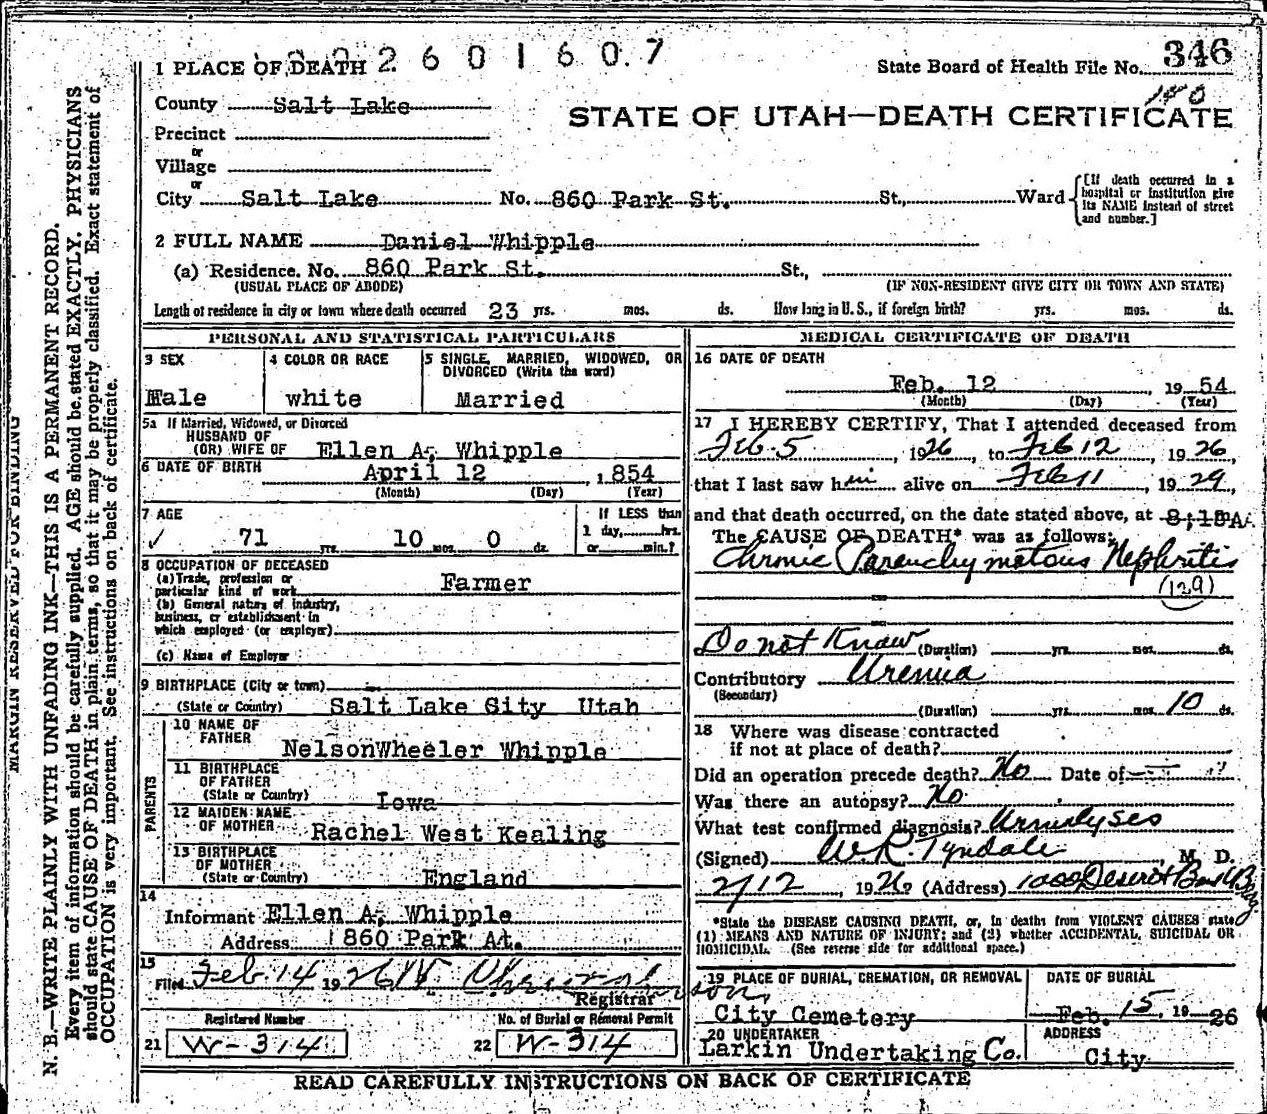 2601607
1 PLACE OF DEATH
State Board of Health File No. 346
County Salt Lake
STATE OF UTAH—DEATH CERTIFICATE
Precinct
or
Village
or
City Salt Lake No. 860 Park St. St., Ward
[If death occurred in a
hospital or institution give
its NAME instead of street
and number.]
2 FULL NAME Daniel Whipple
(a) Residence. No. 860 Park St. St.,
(USUAL PLACE OF ABODE) (IF NON-RESIDENT GIVE CITY OR TOWN AND STATE)
Length of residence in city or town where death occurred 23 yrs. mos. ds. How long in U. S., if foreign birth? yrs. mos. ds.
MARGIN RESERVED FOR BINDING
N. B.—WRITE PLAINLY WITH UNFADING INK—THIS IS A PERMANENT RECORD.
Every item of information should be carefully supplied. AGE should be stated EXACTLY. PHYSICIANS
should state CAUSE OF DEATH in plain terms, so that it may be properly classified. Exact statement of
OCCUPATION is very important. See instructions on back of certificate.
PERSONAL AND STATISTICAL PARTICULARS
3 SEX
Male
4 COLOR OR RACE
white
5 SINGLE, MARRIED, WIDOWED, OR
DIVORCED (Write the word)
Married
5a If Married, Widowed, or Divorced
HUSBAND OF
(OR) WIFE OF Ellen A. Whipple
6 DATE OF BIRTH April 12, 1854
(Month) (Day) (Year)
7 AGE
71 yrs. 10 mos. 0 ds.
If LESS than
1 day, hrs.
or min.?
8 OCCUPATION OF DECEASED
(a) Trade, profession or
particular kind of work Farmer
(b) General nature of industry,
business, or establishment in
which employed (or employer)
(c) Name of Employer
9 BIRTHPLACE (City or town)
(State or Country) Salt Lake Sity Utah
PARENTS
10 NAME OF
FATHER NelsonWheeler Whipple
11 BIRTHPLACE
OF FATHER
(State or Country) Iowa
12 MAIDEN NAME
OF MOTHER Rachel West Kealing
13 BIRTHPLACE
OF MOTHER
(State or Country) England
14
Informant Ellen A. Whipple
Address 860 Park At.
15
Filed Feb 14 1926
Registrar
Registered Number
21 W-314
No. of Burial or Removal Permit
22 W-314
MEDICAL CERTIFICATE OF DEATH
16 DATE OF DEATH
Feb. 12 1954
(Month) (Day) (Year)
17 I HEREBY CERTIFY, That I attended deceased from
Feb. 5, 1926, to Feb 12 1926,
that I last saw him alive on Feb 11, 1929,
and that death occurred, on the date stated above, at 8;15A.
The CAUSE OF DEATH* was as follows:
Chronic Parenchymatous Nephritis
(129)
Do not Know (Duration) yrs. mos. ds.
Contributory Uremia
(Secondary)
(Duration) yrs. mos. 10 ds.
18 Where was disease contracted
if not at place of death?
Did an operation precede death? No Date of
Was there an autopsy? No.
What test confirmed diagnosis? Urinalyses
(Signed) W. R. Tyndale, M. D.
2/12, 1926 (Address) 1000 Deseret Bank Bldg.
*State the DISEASE CAUSING DEATH, or, in deaths from VIOLENT CAUSES state
(1) MEANS AND NATURE OF INJURY; and (2) whether ACCIDENTAL, SUICIDAL OR
HOMICIDAL. (See reverse side for additional space.)
19 PLACE OF BURIAL, CREMATION, OR REMOVAL
City Cemetery
DATE OF BURIAL
Feb. 15, 1926
20 UNDERTAKER
Larkin Undertaking Co.
ADDRESS
City
READ CAREFULLY INSTRUCTIONS ON BACK OF CERTIFICATE